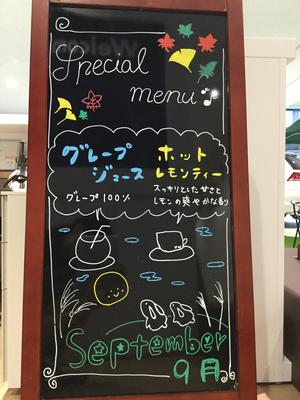 Special
menu♪
グレープ
ジュース
グレープ100%
ホット
レモンティー
スッキリとした甘さと
レモンの爽やかな香り
September
9月